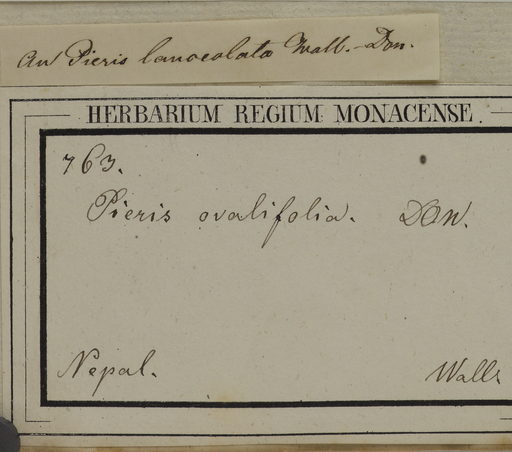 an Pieris lanceolata Wall.-Don.
HERBARIUM REGIUM MONACENSE.
763.
Pieris ovalifolia. DOn.
Nepal. Wallr